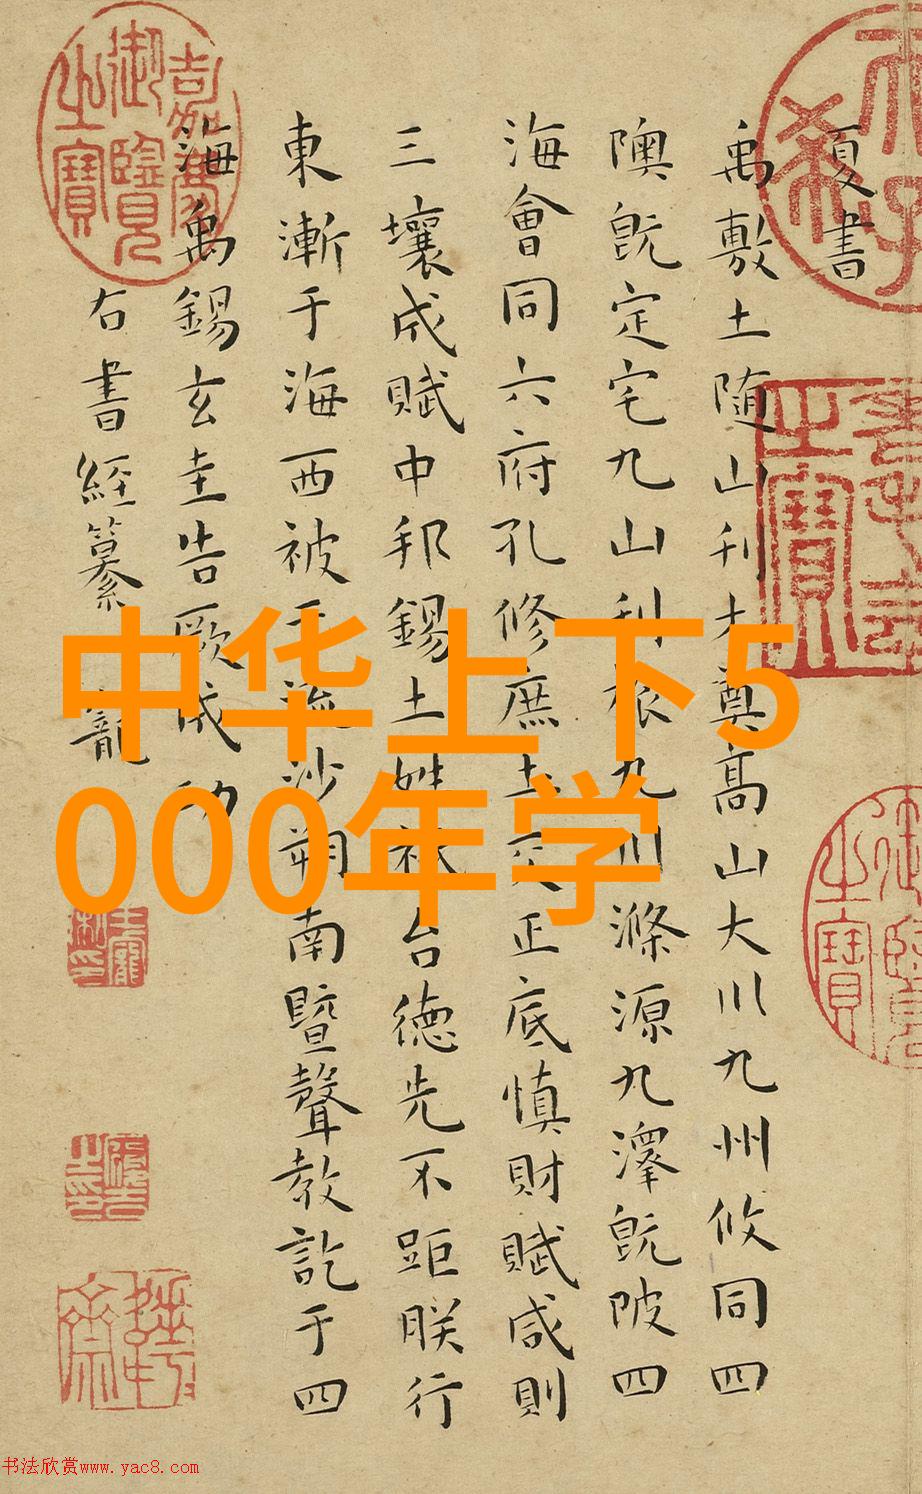 夏書
禹敷土随山刊木奠髙山大川九州攸同四
隩既定宅九山刊旅九川滌源九澤既陂四
海會同六府孔修庶土交正底慎財賦咸則
三壤成賦中邦錫土姓祗台德先不距朕行
東漸于海西被于流沙朔南暨聲教訖于四
海禹錫玄圭告厥成功
右書經纂 寵
嘉慶御覽之寶
中华上下5
000年学
书法欣赏www.yac8.com